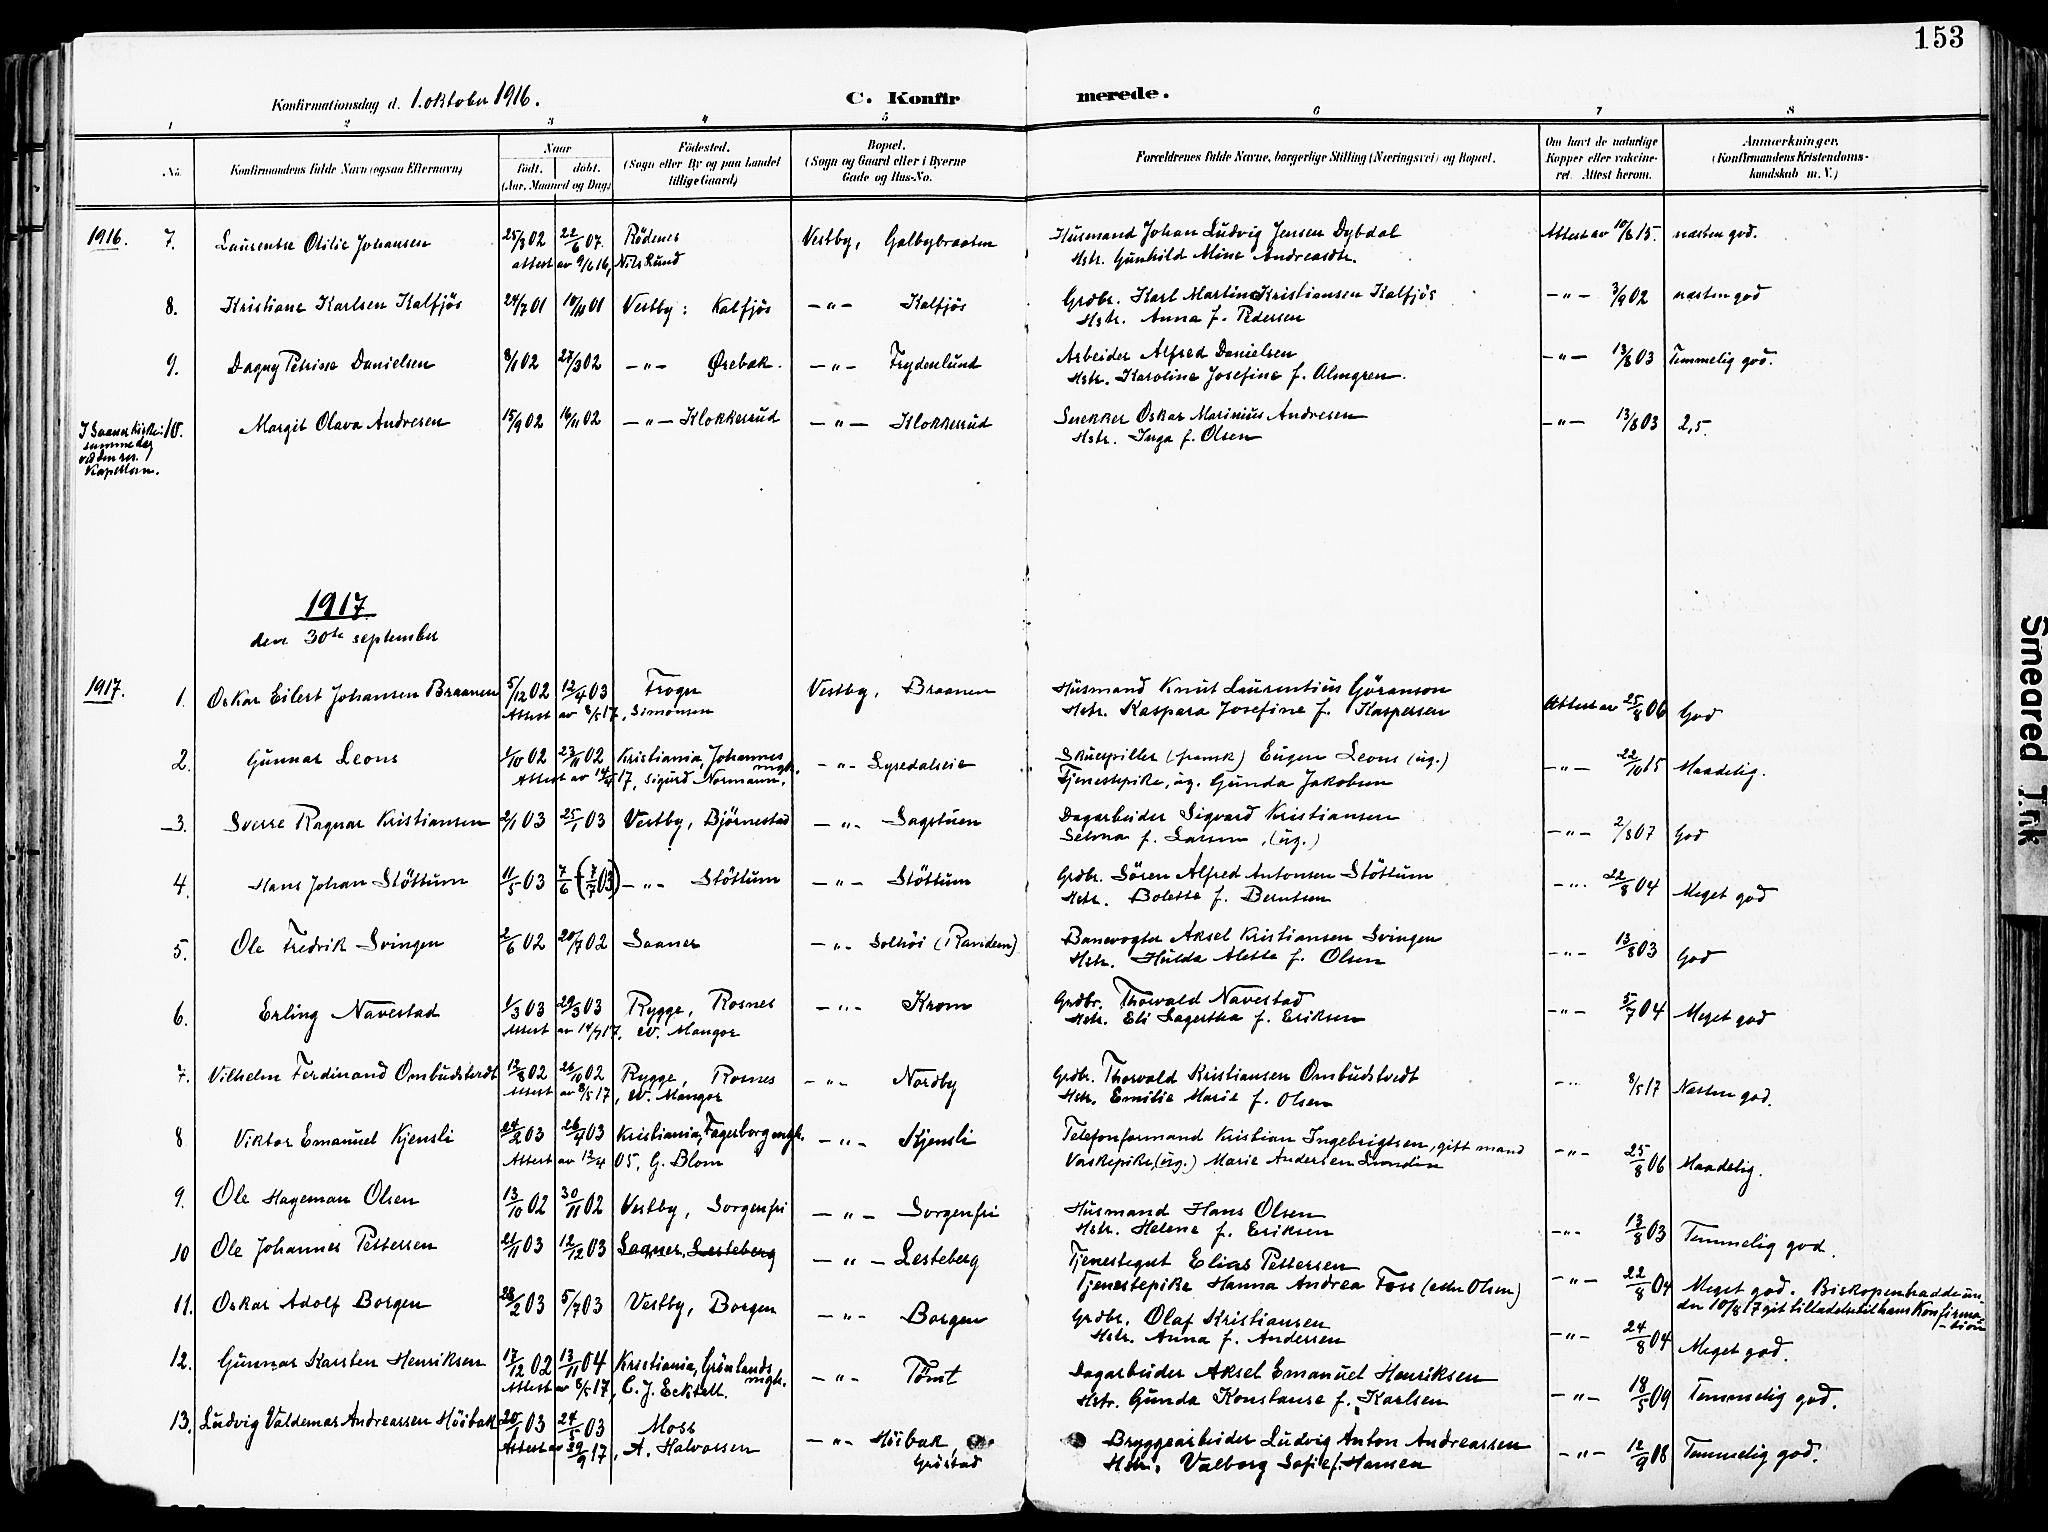 153
Konfirmationsdag d. 1. oktober 1916.
C. Konfirmerede.
1 2 3 4 5 6 7 8
No. Konfirmandens fulde Navn (ogsaa Efternavn)
Naar født. døbt. (Aar, Maaned og Dag)
Fødested. (Sogn eller By og paa Landet tillige Gaard)
Bopæl. (Sogn og Gaard eller i Byerne Gade og Hus-No.
Forældrenes fulde Navne, borgerlige Stilling (Næringsvei) og Bopæl.
Om havt de naturlige Kopper eller vakcineret. Attest herom.
Anmærkninger, (Konfirmandens Kristendomskundskab m. V.)
1916. 7. Laurentse Otilie Johansen 25/3 02 22/6 07. Rödenes Vestby, Galbybraaten Husmand Johan Ludvig Jensen Dybdal Attest av 10/6 15. næsten god.
attest av 9/6 16, Nils Rund Hstr. Gunhild Mine Andreasdtr.
8. Kristiane Karlsen Kalfjös 24/7 01 10/11 01 Vestby: Kalfjös -"- Kalfjös Grdbr. Karl Martin Kristiansen Kalfjös -"- 3/9 02 næsten god
Hstr. Anna f. Pedersen
9. Dagny Petrine Danielsen 8/1 02 27/3 02 -"- Ørebæk. -"- Frydenlund Arbeider Alfred Danielsen -"- 13/8 03 Temmelig god.
Hstr. Karoline Josefine f. Almgren.
I Saaner kirke: 10. Margit Olava Andresen 15/9 02 16/11 02 -"- Klokkerud -"- Klokkerud Snekker Oskar Marinius Andresen -"- 13/8 03 2,5.
samme dag Hstr. Inga f. Olsen
ved den res.
Kapellan.
1917
den 30te september
1917. 1. Oskar Eilert Johansen Braanen 5/12 02 12/4 03 Frogn Vestby, Braanen Husmand Knut Laurentius Göranson Attest av 25/8 06 God
Attest av 8/5 17, Simonsen Hstr. Kaspara Josefine f. Kaspersen
2. Gunnar Leons 1/10 02 23/11 02 Kristiania, Johannes mgh. -"- Lysedalseie Skuespiller (fransk) Eugen Leons (ug.) -"- 22/10 15 Maadelig.
Attest av 14/4 17, Sigurd Normann. Tjenestepike, ug. Gunda Jakobsen
3. Sverre Ragnar Kristiansen 2/1 03 25/1 03 Vestby, Björnestad -"- Sagstuen Dagarbeider Sigvard Kristiansen -"- 2/8 07 God
Selma f. Larsen, (ug.)
4. Hans Johan Stöttum 11/5 03 7/6 (7/7 03) -"- Stöttum -"- Stöttum Grdbr. Sören Alfred Antonsen Stöttum -"- 22/8 04 Meget god
Hstr. Bolette f. Berntsen
5. Ole Fredrik Svingen 2/6 02 20/7 02 Saaner -"- Solhöi (Randem) Banevogter Aksel Kristiansen Svingen -"- 13/8 03 God
Hstr. Hulda Alette f. Olsen
6. Erling Navestad 1/3 03 29/3 03 Rygge, Rosnes -"- Krom Grdbr. Thorvald Navestad -"- 5/7 04 Meget god
Attest av 14/4 17. W. Mangor Hstr. Eli Sagertha f. Eriksen
7. Vilhelm Ferdinand Ombudstvedt 12/8 02 26/10 02 Rygge, Rosnes -"- Nordby Grdbr. Thorvald Kristiansen Ombudstvedt -"- 8/5 17 Næsten god.
Attest av 8/5 17, W. Mangor Hstr. Emilie Marie f. Olsen
8 Viktor Emanuel Kjensli 24/2 03 26/4 03 Kristiania, Fagerborg mgh. -"- Kjensli Telefonformand Kristian Ingebrigtsen, gift mand -"- 25/8 06 Maadelig.
Attest av 12/4 05, G. Blom Vaskepike (ug.) Marie Andersen Lundin
9. Ole Hageman Olsen 13/10 02 30/11 02 Vestby, Sorgenfri -"- Sorgenfri Husmand Hans Olsen -"- 13/8 03 Temmelig god.
Hstr. Helene f. Eriksen
10 Ole Johannes Pettersen 21/11 03 12/12 03 Saaner, Lesteberg -"- Lesteberg Tjenestegut Elias Pettersen -"- 22/8 04 Meget god. Biskopen hadde un-
Tjenestepike Hanna Andrea Foss (eller Olsen) der 10/8 17 git tilladelse til hans Konfirma-
tion
11. Oskar Adolf Borgen 28/2 03 5/7 03 Vestby, Borgen -"- Borgen Grdbr. Olaf Kristiansen -"- 24/8 04 Meget god.
Hstr. Anna f. Andersen
12. Gunnar Karsten Henriksen 17/12 02 13/11 04 Kristiania, Grönlands mgh. -"- Tömt Dagarbeider Aksel Emanuel Henriksen -"- 18/5 09 Temmelig god.
Attest av 8/5 17, C. J. Eckhell. Hstr. Gunda Konstanse f. Karlsen
13. Ludvig Valdemar Andreassen Höibak 20/1 03 24/5 03 Moss -"- Höibak, Bryggearbeider Ludvig Anton Andreassen -"- 12/9 08 Temmelig god.
Attest av 29/9 17, A. Halvorsen Gröstad Hstr. Valborg Sofie f. Hansen
Smeared Trk